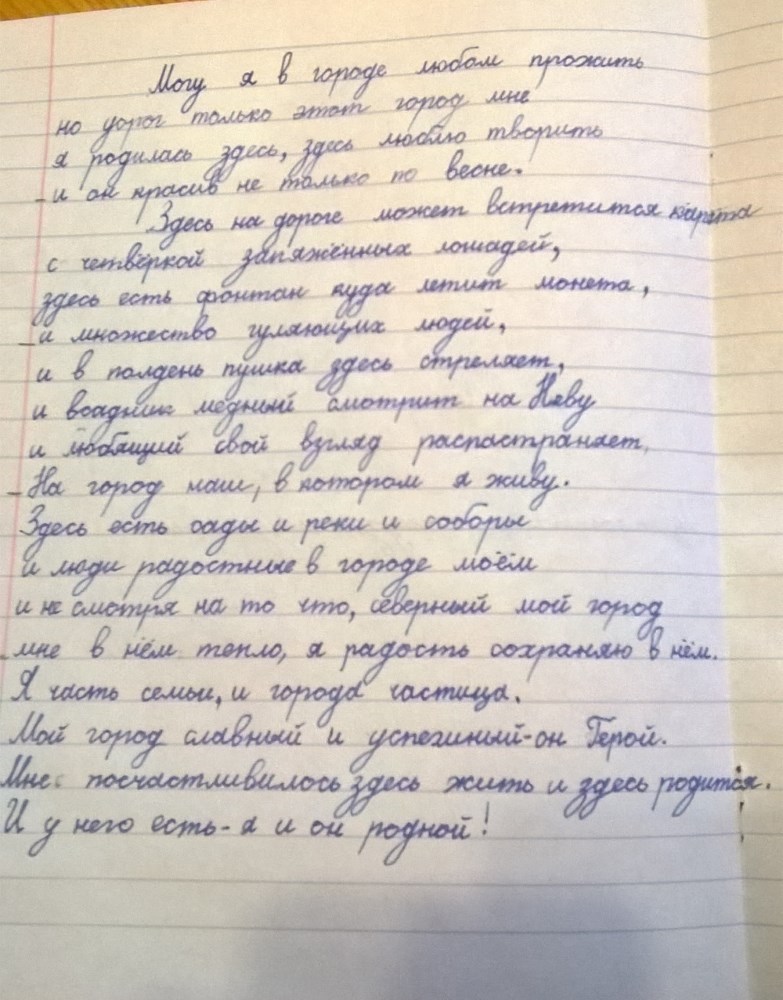 Могу я в городе любом прожить
но дорог только этот город мне
я родилась здесь, здесь люблю творить
и он красив не только по весне.
Здесь на дороге может встретится карета
с четвёркой запяжённых лошадей,
здесь есть фонтан куда летит монета,
и множество гуляющих людей,
и в полдень пушка здесь стреляет,
и всадник медный смотрит на Неву
и любящий свой взгляд распастраняет,
На город наш, в котором я живу.
Здесь есть сады и реки и соборы
и люди радостные в городе моём
и не смотря на то что, северный мой город
мне в нём тепло, я радость сохраняю в нём.
Я часть семьи, и города частица.
Мой город славный и успешный-он Герой.
Мне посчастливилось здесь жить и здесь родится.
И у него есть-я и он родной!